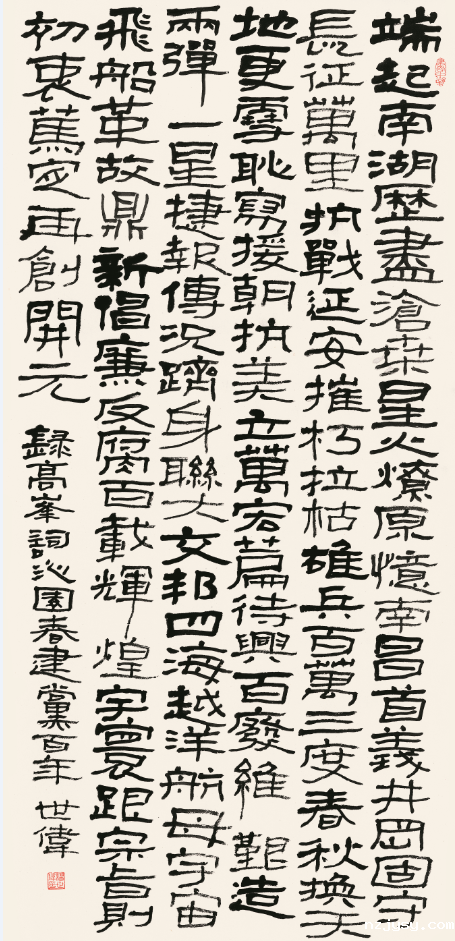 端起南湖歷盡滄桑星火燎原憶南昌首義井岡固守
長征萬里抗戰延安摧朽拉枯雄兵百萬三度春秋換天
地更雪恥寫援朝抗美立萬宏篇待興百廢維艱造
兩彈一星捷報傳況躋身聯大友邦四海越洋航母宇宙
飛船革故鼎新倡廉反腐百載輝煌宇寰跟宗旨則
初衷篤定再創開元
錄高峯詞沁園春建黨百年 世偉